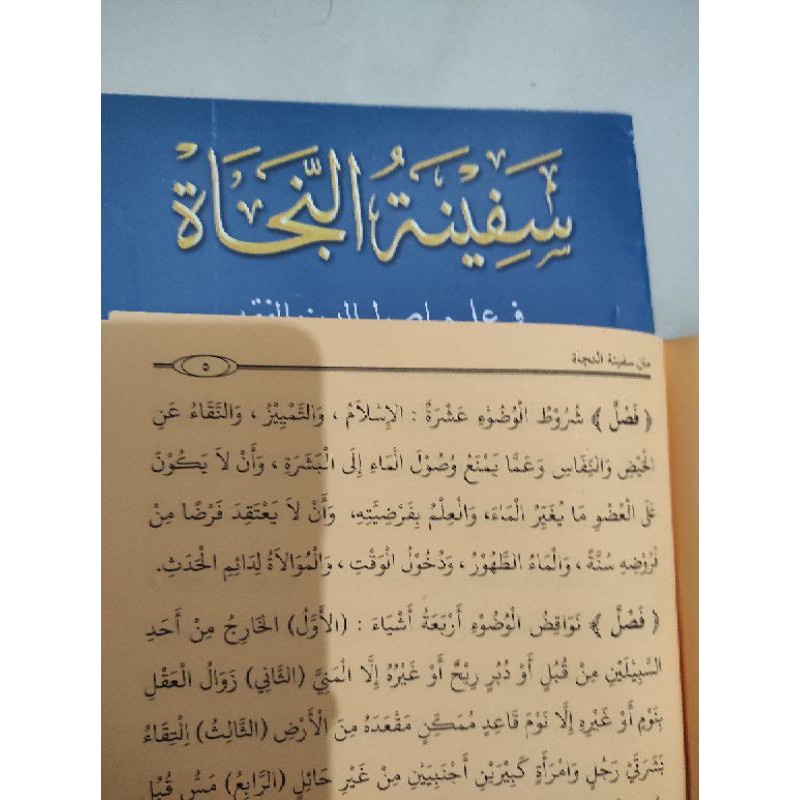 سَفِينَةُ النَّجَاةِ
متن سفينة النجاة
٥
﴿ فَصْلٌ ﴾ شُرُوْطُ الْوُضُوْءِ عَشَرَةٌ : الإِسْلَامُ ، وَالتَّمْيِيْزُ ، وَالنَّقَاءُ عَنِ
الْحَيْضِ وَالنِّفَاسِ وَعَمَّا يَمْنَعُ وُصُوْلَ الْمَاءِ إِلَى الْبَشَرَةِ ، وَأَنْ لَا يَكُوْنَ
عَلَى الْعُضْوِ مَا يُغَيِّرُ الْمَاءَ، وَالْعِلْمُ بِفَرْضِيَّتِهِ، وَأَنْ لَا يَعْتَقِدَ فَرْضًا مِنْ
فُرُوْضِهِ سُنَّةً ، وَالْمَاءُ الطَّهُوْرُ ، وَدُخُوْلُ الْوَقْتِ ، وَالْمُوَالَاةُ لِدَائِمِ الْحَدَثِ.
﴿ فَصْلٌ ﴾ نَوَاقِضُ الْوُضُوْءِ أَرْبَعَةُ أَشْيَاءَ : (الأَوَّلُ) الخَارِجُ مِنْ أَحَدِ
السَّبِيْلَيْنِ مِنْ قُبُلٍ أَوْ دُبُرٍ رِيْحٌ أَوْ غَيْرُهُ إِلَّا الْمَنِيَّ (الثَّانِي) زَوَالُ الْعَقْلِ
بِنَوْمٍ أَوْ غَيْرِهِ إِلَّا نَوْمَ قَاعِدٍ مُمَكِّنٍ مَقْعَدَهُ مِنَ الْأَرْضِ (الثَّالِثُ) اِلْتِقَاءُ
بَشَرَتَيْ رَجُلٍ وَامْرَأَةٍ كَبِيْرَيْنِ أَجْنَبِيَّيْنِ مِنْ غَيْرِ حَائِلٍ (الرَّابِعُ) مَسُّ قُبُلِ